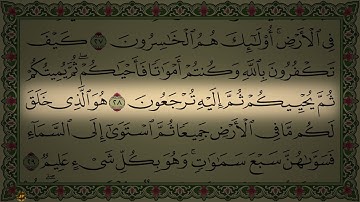 فِي الْأَرْضِ ۚ أُولَٰئِكَ هُمُ الْخَاسِرُونَ ٢٧ كَيْفَ
تَكْفُرُونَ بِاللَّهِ وَكُنتُمْ أَمْوَاتًا فَأَحْيَاكُمْ ۖ ثُمَّ يُمِيتُكُمْ
ثُمَّ يُحْيِيكُمْ ثُمَّ إِلَيْهِ تُرْجَعُونَ ٢٨ هُوَ الَّذِي خَلَقَ
لَكُم مَّا فِي الْأَرْضِ جَمِيعًا ثُمَّ اسْتَوَىٰ إِلَى السَّمَاءِ
فَسَوَّاهُنَّ سَبْعَ سَمَاوَاتٍ ۚ وَهُوَ بِكُلِّ شَيْءٍ عَلِيمٌ ٢٩